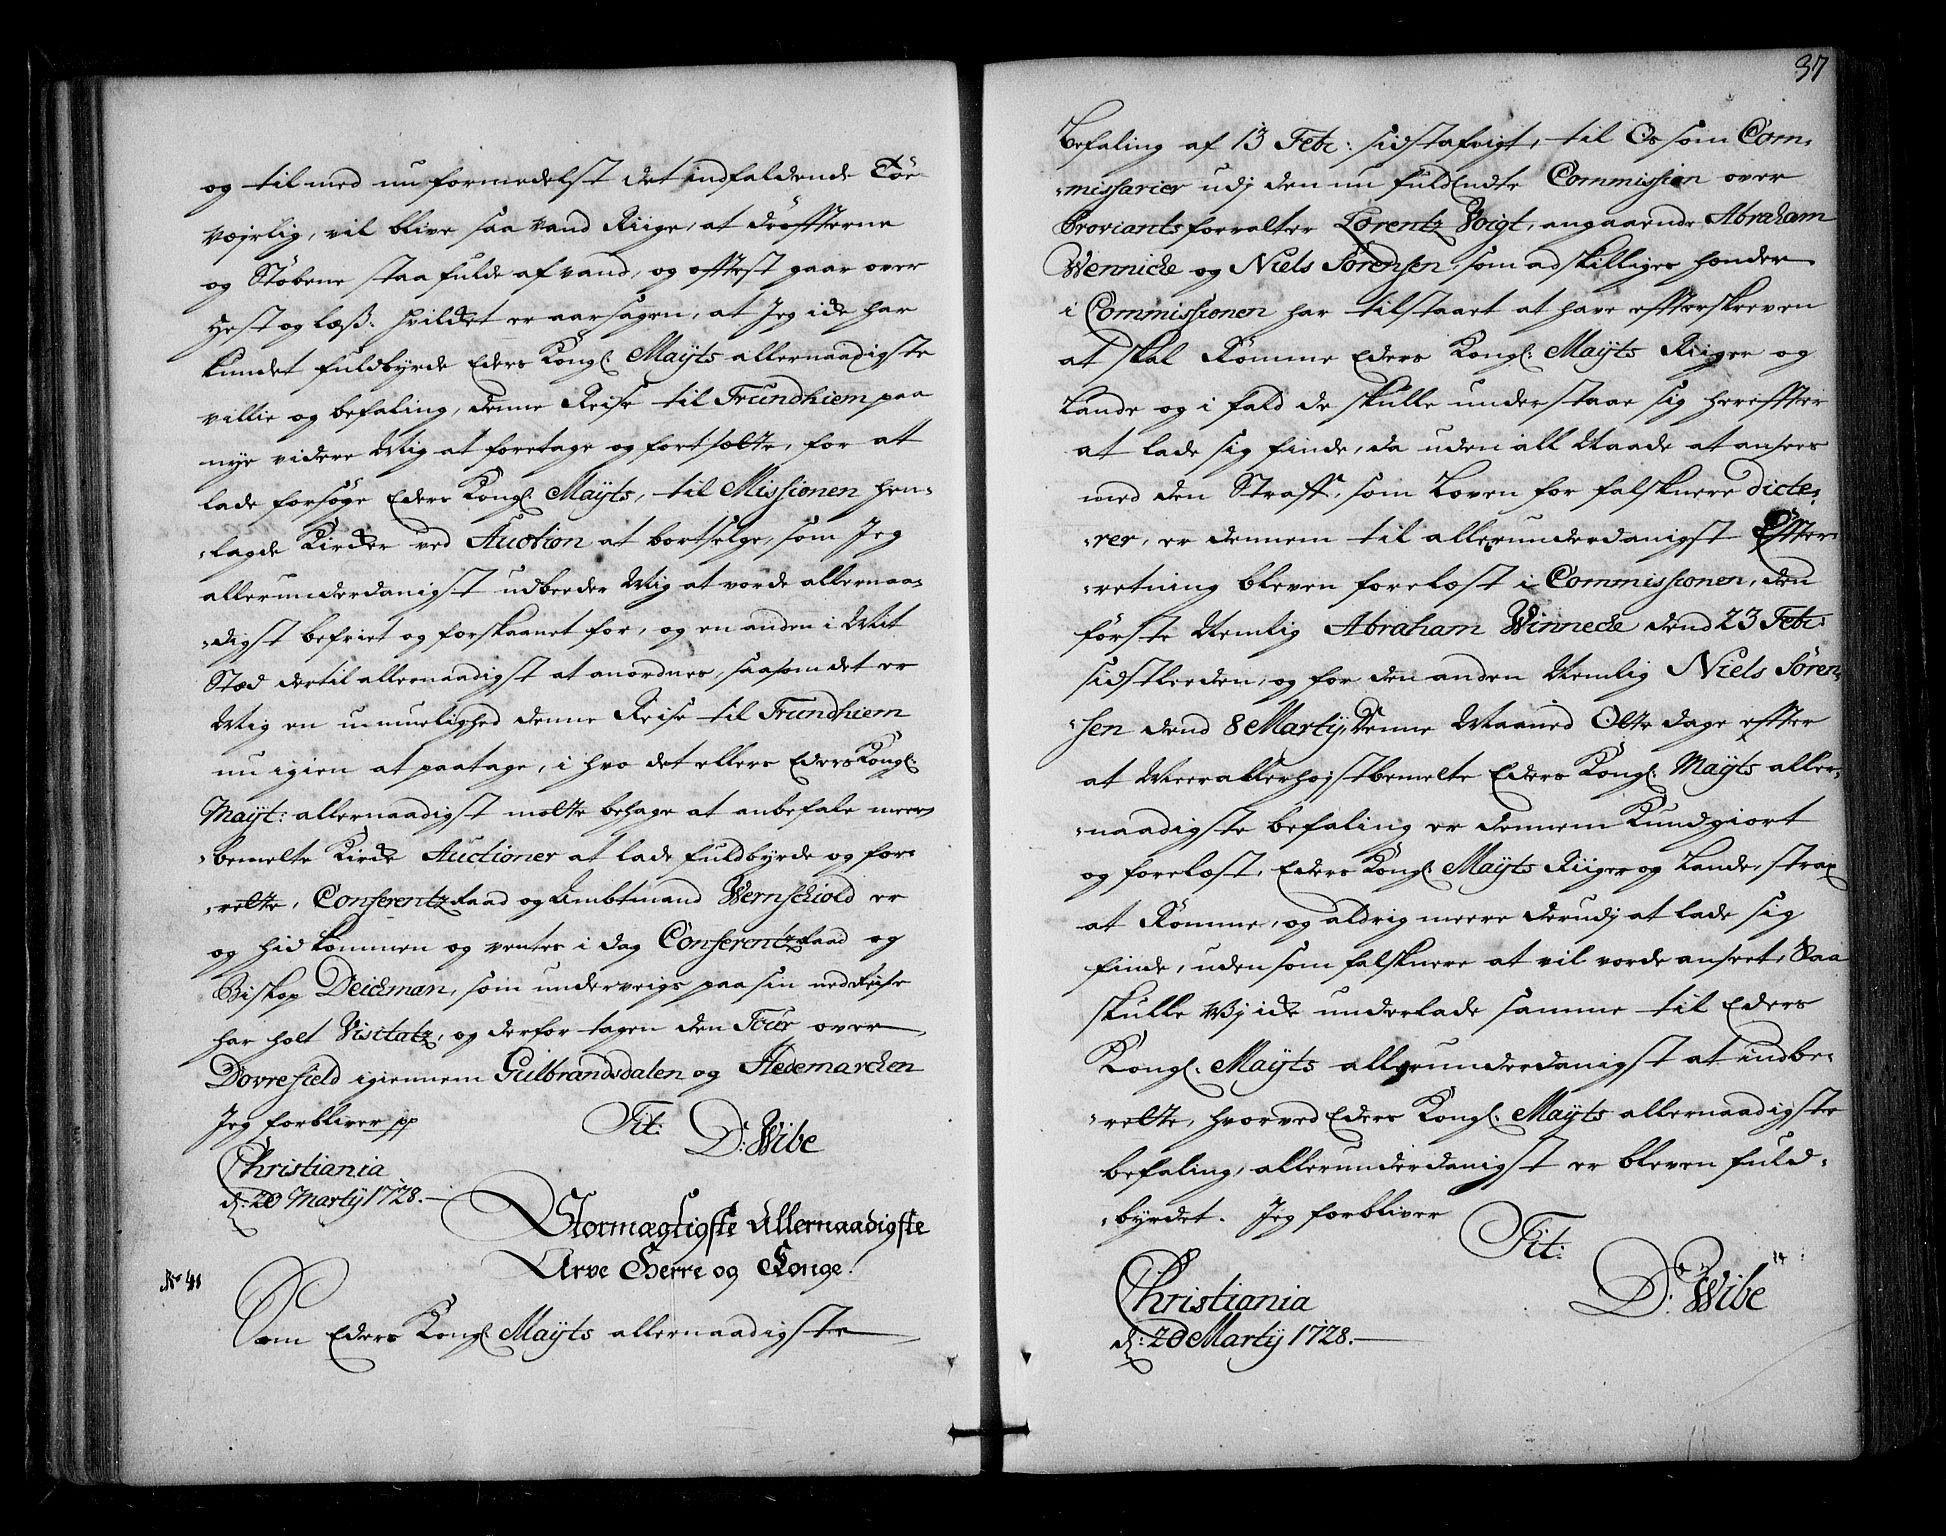 og til med nu formedelst det indfaldende Töe-
vejrlig, vil blive saa vand Riige, at drøffterne
og Støbene staa fulde af vand, og offtest gaar over
Hest og læss: hvilcket er aarsagen, at Jeg icke har
kundet fuldbyrde Eders Kongl: Mayts allernaadigste
villie og befaling, denne Reise til Trundhiem paa
nye videre Mig at foretage og fortsætte, for at
lade forsøge Eders Kongl: Mayts, til Missionen hen-
-lagde Kircker ved Auction at bortselge, som Jeg
allerunderdanigst udbeeder Mig at vorde allernaa-
-digst befriet og forskaanet for, og en anden i Mit
Stæd dertil allernaadigst at anordnes, saasom det er
Mig en umuelighed denne Reise til Trundhiem
nu igien at paatage, i hvo det ellers Eders Kongl:
Mayt: allernaadigst motte behage at anbefale meer
-bemelte Kircke Auctioner at lade fuldbyrde og for-
-rette, Conferentz Raad og Ambtmand Vernschiold er
og hid kommen og ventes i dag Conferentz Raad og
Biskop Deichman, som underveigs paa sin ned Reise
har holt Visitatz, og derfor tagen den Tour over
Dovrefield igiennem Gulbrandsdalen og Hedemarchen
Jeg forbliver pp Tit: D: Wibe
Christiania
d: 20 Martij 1728.
Stormægtigste Allernaadigste
Arve Herre og Konge!
No 41
Som Eders Kongl: Mayts allernaadigste
37
Befaling af 13 Febr: sidstafvigt, til Os som Com-
-missarier udj den nu fuldendte Commission over
Proviantsforvalter Lorentz Voigt, angaaende Abraham
Wennicke og Niels Sørensen, som adskilliges hender
i Commissionen har tilstaaet at have effterskreven
at skal Rømme Eders Kongl: Mayts Riiger og
Lande og i fald de skulle understaae sig hereffter
at lade sig finde, da uden all Naade at ansees
med den Straff, som Loven for falsknere dicte-
-rer, er dennem til allerunderdanigst Effter-
-retning bleven forelæst i Commissionen, den
første Nemlig Abraham Winnecke dend 23 Febr:
sidstleeden, og for den anden Nemlig Niels Søren-
-sen dend 8 Martij, Denne Maaned Otte dage effter
at Meerallerhøjstbemelte Eders Kongl: Mayts aller-
-naadigste befaling er dennem Kundgiort
og forelæst, Eders Kongl: Mayts Riiger og Lande, strax
at Rømme, og aldrig meere derudj at lade sig
finde, uden som falsknere at vil vorde anseet, Saa
skulle Vj icke underlade samme til Eders
Kongl: Mayts allerunderdanigst at indbe-
-rette, hvorved Eders Kongl: Mayts allernaadigste
befaling, allerunderdanigst er bleven fuld-
-byrdet. Jeg forbliver
Tit:
D: Wibe
Christiania
d: 20 Martij 1728.